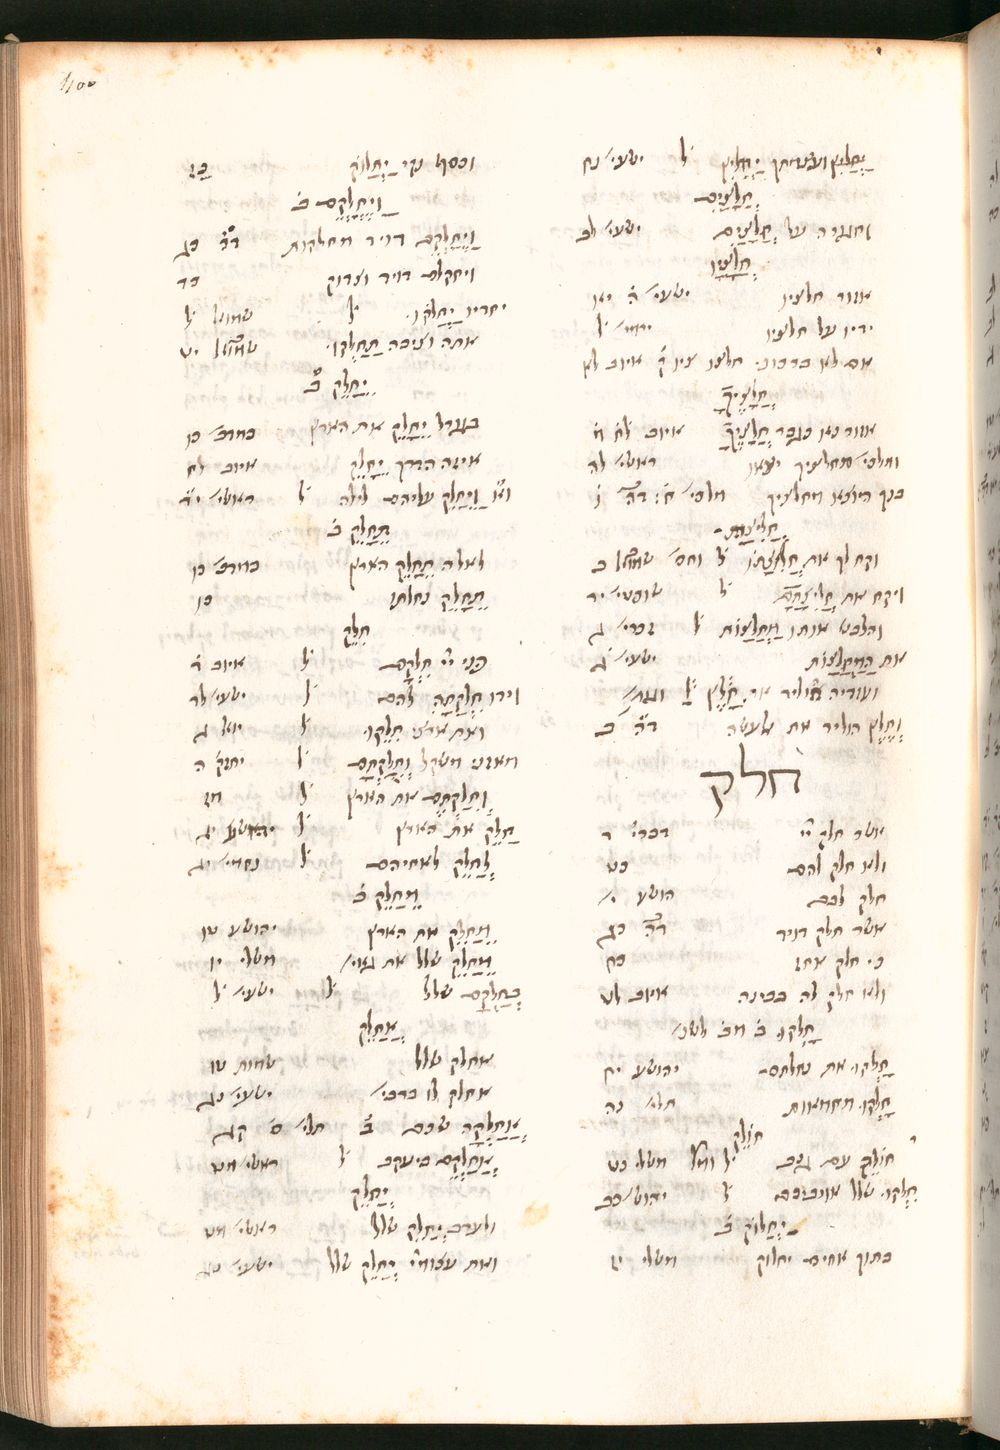 400
יַחֲלִיץ ועצמתך יַחֲלִיץ ל ישעי׳ נח
חֲלָצַיִם
וחגורה על חֲלָצָיִם ישעי׳ לב
חֲלָצָיו
אזור חלציו ישעי׳ ה יא
ידיו על חלציו ירמי׳ ל
אם לא ברכוני חלצו איוב לא
חֲלָצֶיךָ
אזור נא כגבר חֲלָצֶיךָ איוב לח מ
ומלכי׳ מחלציך יצאו ראשי׳ לה
בנך היוצא מחלציך מלכי׳ ח׳ דה ו
חֲלִיצָתו
וקח לך את חֲלִיצָתוֹ ל וחס׳ שמואל ב
ויקח את חֲלִיצָתָם ל שופטי׳ יד
והלבש אותו מַחֲלָצוֹת ל זכרי׳ ג
את הַמַחֲלָצוֹת ישעי׳ ג
ועזריה הוליד את חָלֶץ
וְחָלֶץ הוליד את אלעשה דה ב
חלק
אשר חלק יי׳ דברי׳ ד
ולא חלק להם כט
חלק לבם הושע י׳
אשר חלק דויד דה כג
כי חלק אתו כח
ולא חלק לה בבינה איוב לט
חָלְקוּ ב
חָלְקוּ את נחלתם יהושע יח
חָלְקוּ מחמאות תלי׳ נה
חוֹלֵק
חוֹלֵק עם גנב ל ומל׳ משלי כט
חִלְקוּ שלל אויביכם ל יהוש׳ כב
יַחֲלוֹק ב
בתוך אחים יחלוק משלי יז
וכסף נקי יַחֲלוֹק כז
וַיֶּחָלְקֵם ב
וַיֶּחָלְקֵם דויד מחלקות דה כג
ויחלקם דויד וצדוק כד
יחדיו יַחֲלֹקוּ ל שמואל ל
אתה וציבה תַּחְלְקוּ שמואל יט
יֵחָלֵק ב
בגורל יֵחָלֵק את הארץ במדב׳ כו
איזה הדרך יֵחָלֶק איוב לח
וא׳ וַיֵּחָלֵק עליהם לילה ל ראשי׳ יד
תֵּחָלֵק ב
לאלה תֵּחָלֵק הארץ במדב׳ כו
תֵּחָלֵק נחלתו כו
חִלֵּק
פני יי׳ חִלְּקָם ל איוב
וידו חִלְּקַתָּה להם ל ישעי׳ לד
ואת ארצי חִלֵּקוּ ל יואל ג
מאזני משקל וְחִלַּקְתָּם ל יחזק׳ ה
וְחִלַּקְתֶּם את הארץ ל מז
חַלֵּק את הארץ ל יהושע יג
לַחֲלֹק לאחיהם ל נחמי׳ יג
מְחַלֵּק ב
מְחַלֵּק את הארץ יהושע יט
מֵחַלֵּק שלל את גאי׳ משלי יו
בְּחַלְּקָם שלל ל ישעי׳ ל
אֲחַלֵּק
אחלק שלל שמות טו
אחלק לו ברבי׳ ישעי׳ נג
אֲחַלְּקָה שכם ב תלי׳ ס קח
אֲחַלְּקֵם ביעקב ל ראשי׳ מט
יְחַלֵּק
ולערב יְחַלֵּק שלל ראשי׳ מט
ואת עצומי׳ יְחַלֵּק שלל ישעי׳ נג